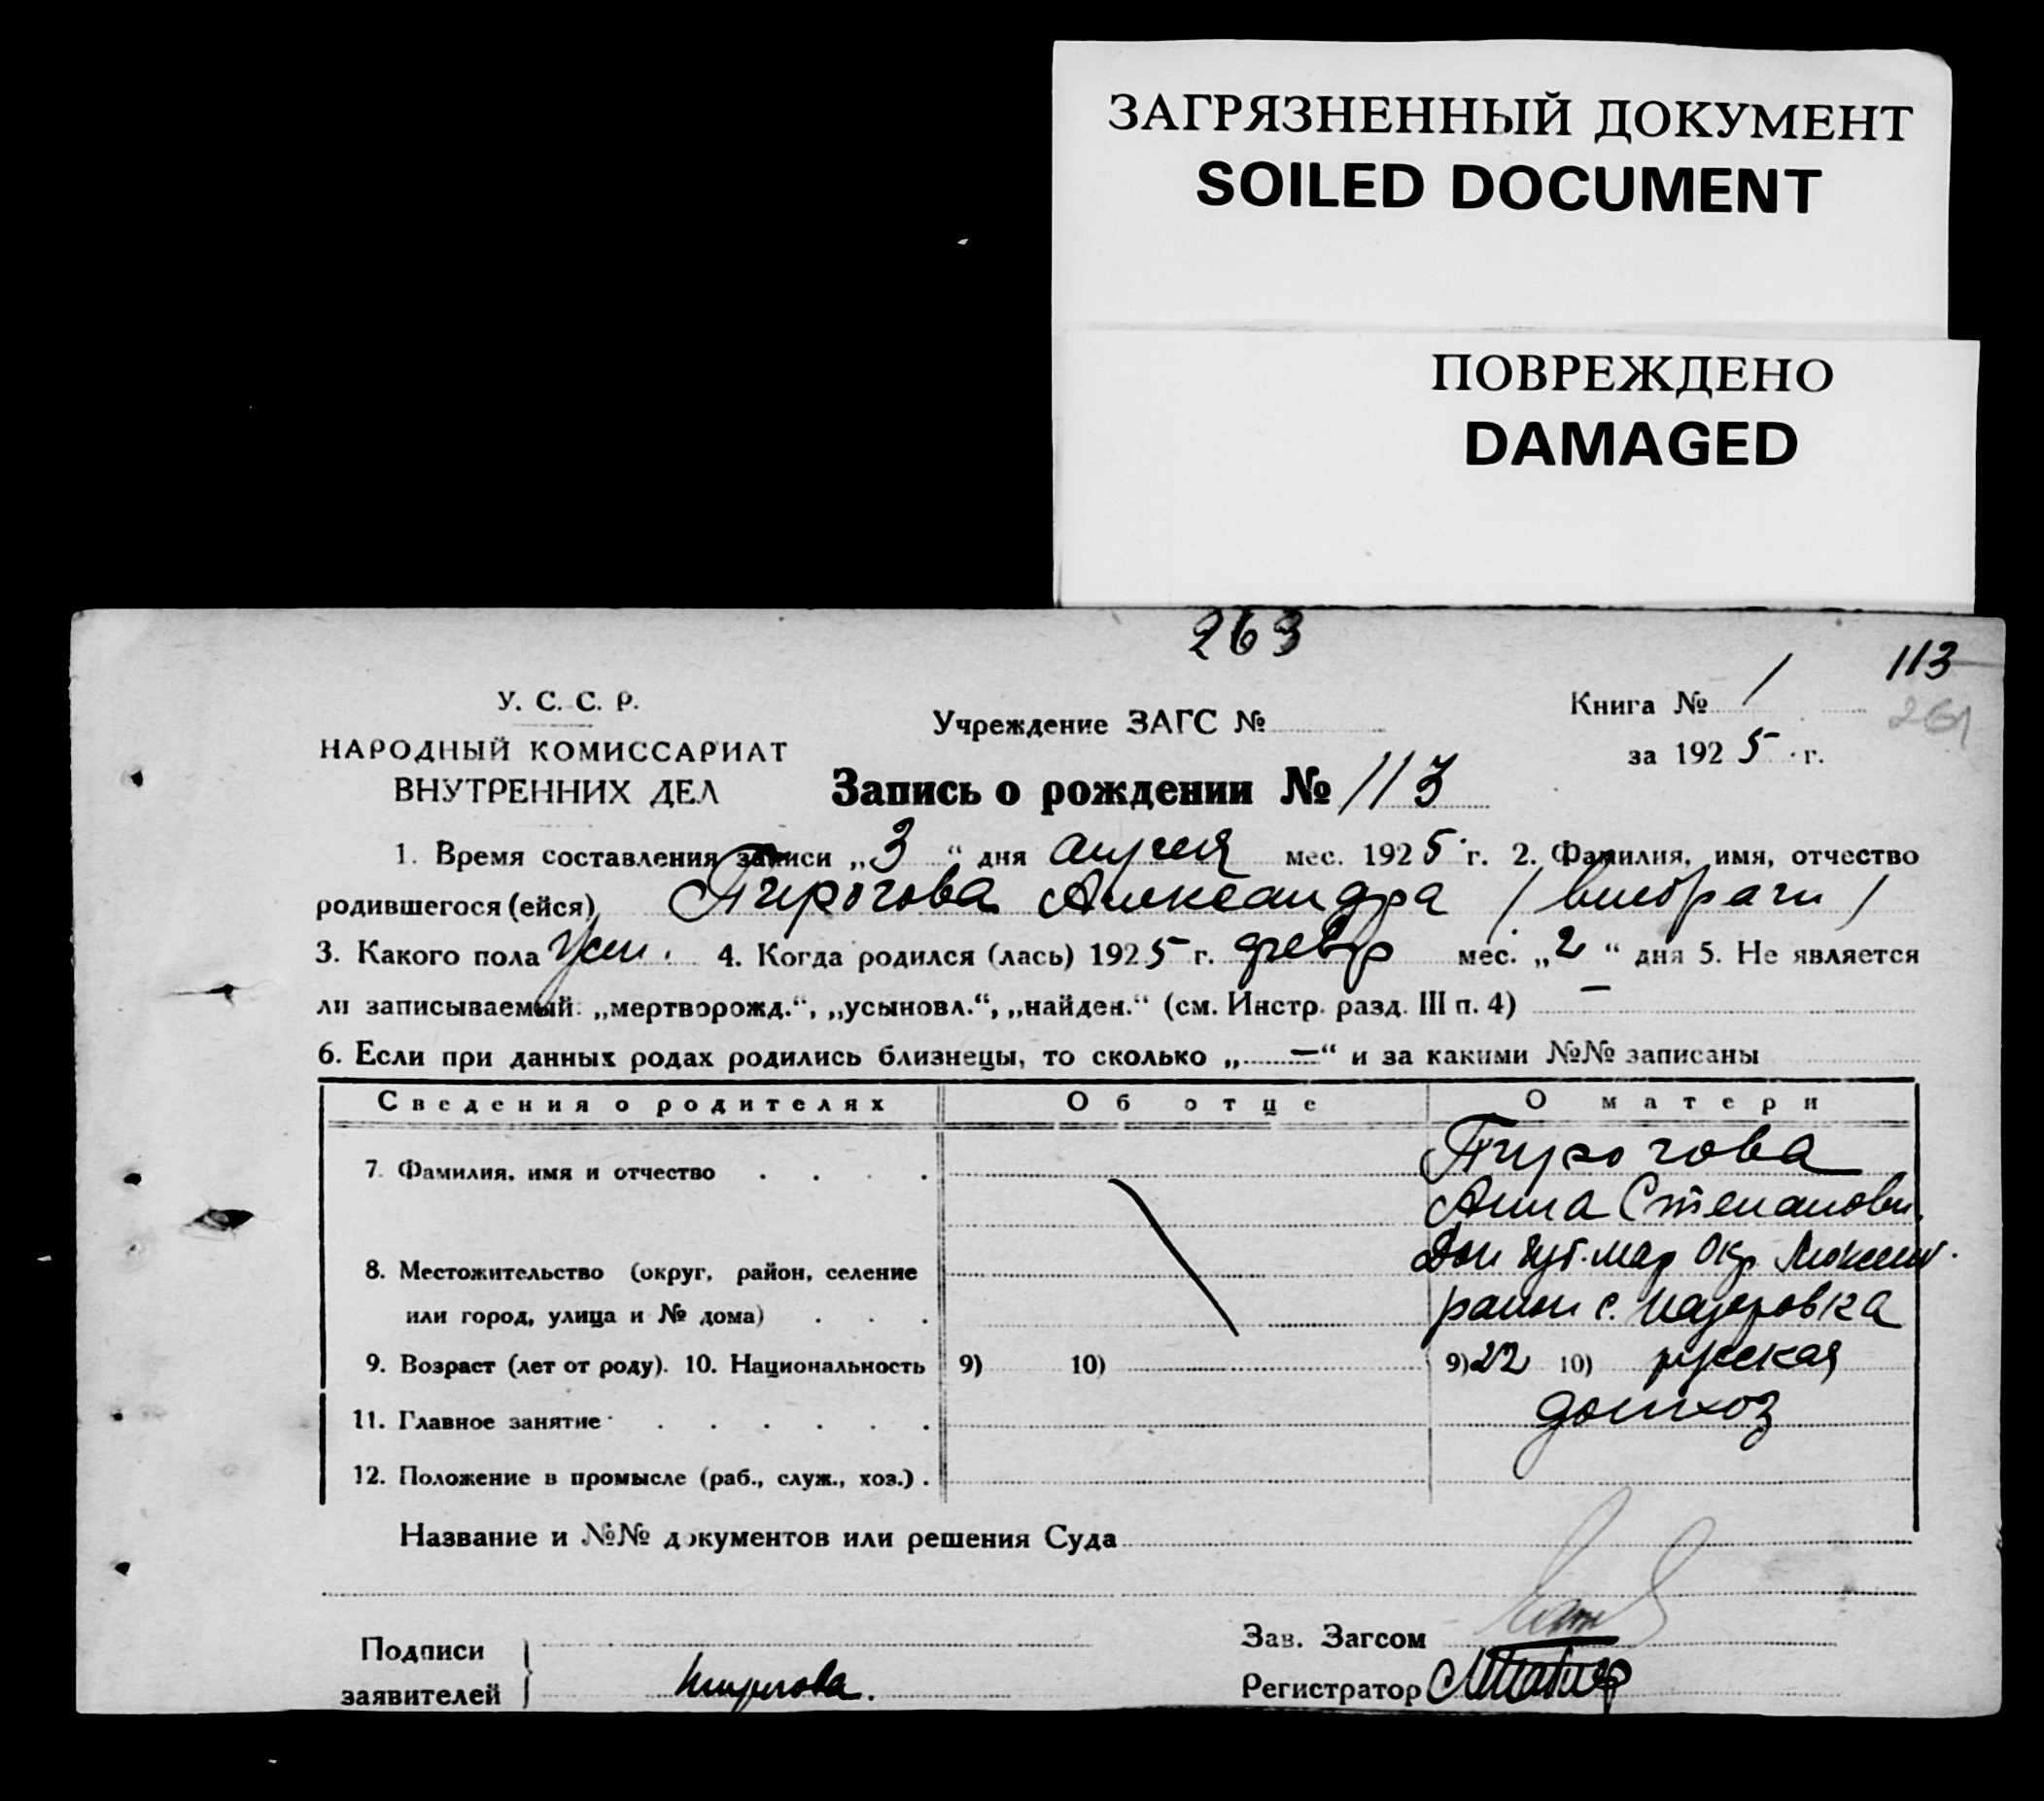 ЗАГРЯЗНЕННЫЙ ДОКУМЕНТ
SOILED DOCUMENT
ПОВРЕЖДЕНО
DAMAGED
263
113
261
У. С. С. Р.
НАРОДНЫЙ КОМИССАРИАТ
ВНУТРЕННИХ ДЕЛ
Учреждение ЗАГС №
Книга № 1
за 1925 г.
Запись о рождении № 113
1. Время составления записи „3“ дня апреля мес. 1925 г. 2. Фамилия, имя, отчество
родившегося (ейся) Пирогова Александра / внебрачн /
3. Какого пола жен. 4. Когда родился (лась) 1925 г. февр мес. „2“ дня 5. Не является
ли записываемый: „мертворожд.“, „усыновл.“, „найден.“ (см. Инстр. разд. III п. 4) —
6. Если при данных родах родились близнецы, то сколько „—“ и за какими №№ записаны
Сведения о родителях Об отце О матери
7. Фамилия, имя и отчество Пирогова
Анна Степановн.
8. Местожительство (округ, район, селение окр.
или город, улица и № дома) район с.
9. Возраст (лет от роду). 10. Национальность 9) 10) 9) 22 10) русская
11. Главное занятие домхоз
12. Положение в промысле (раб., служ., хоз.)
Название и №№ документов или решения Суда
Подписи
заявителей Пирогова.
Зав. Загсом
Регистратор